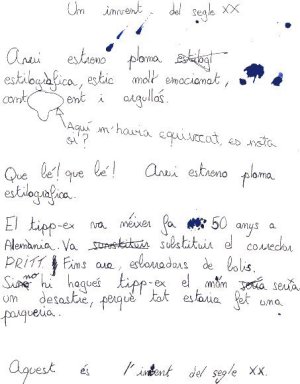 Un invent del segle XX
Avui estreno ploma estilogr
estilogràfica, estic molt emocionat,
cont ent i orgullós.
Aquí m'havia equivocat, es nota
oi?
Que bé! que bé! Avui estreno ploma
estilogràfica.
El tipp-ex va néixer fa 50 anys a
Alemania. Va substituir el corrector
PRITT. Fins ara, esborradors de bolis.
Si no hi hagués tipp-ex el món seria
un desastre, perquè tot estaria fet una
porqueria.
Aquest és l'invent del segle XX.